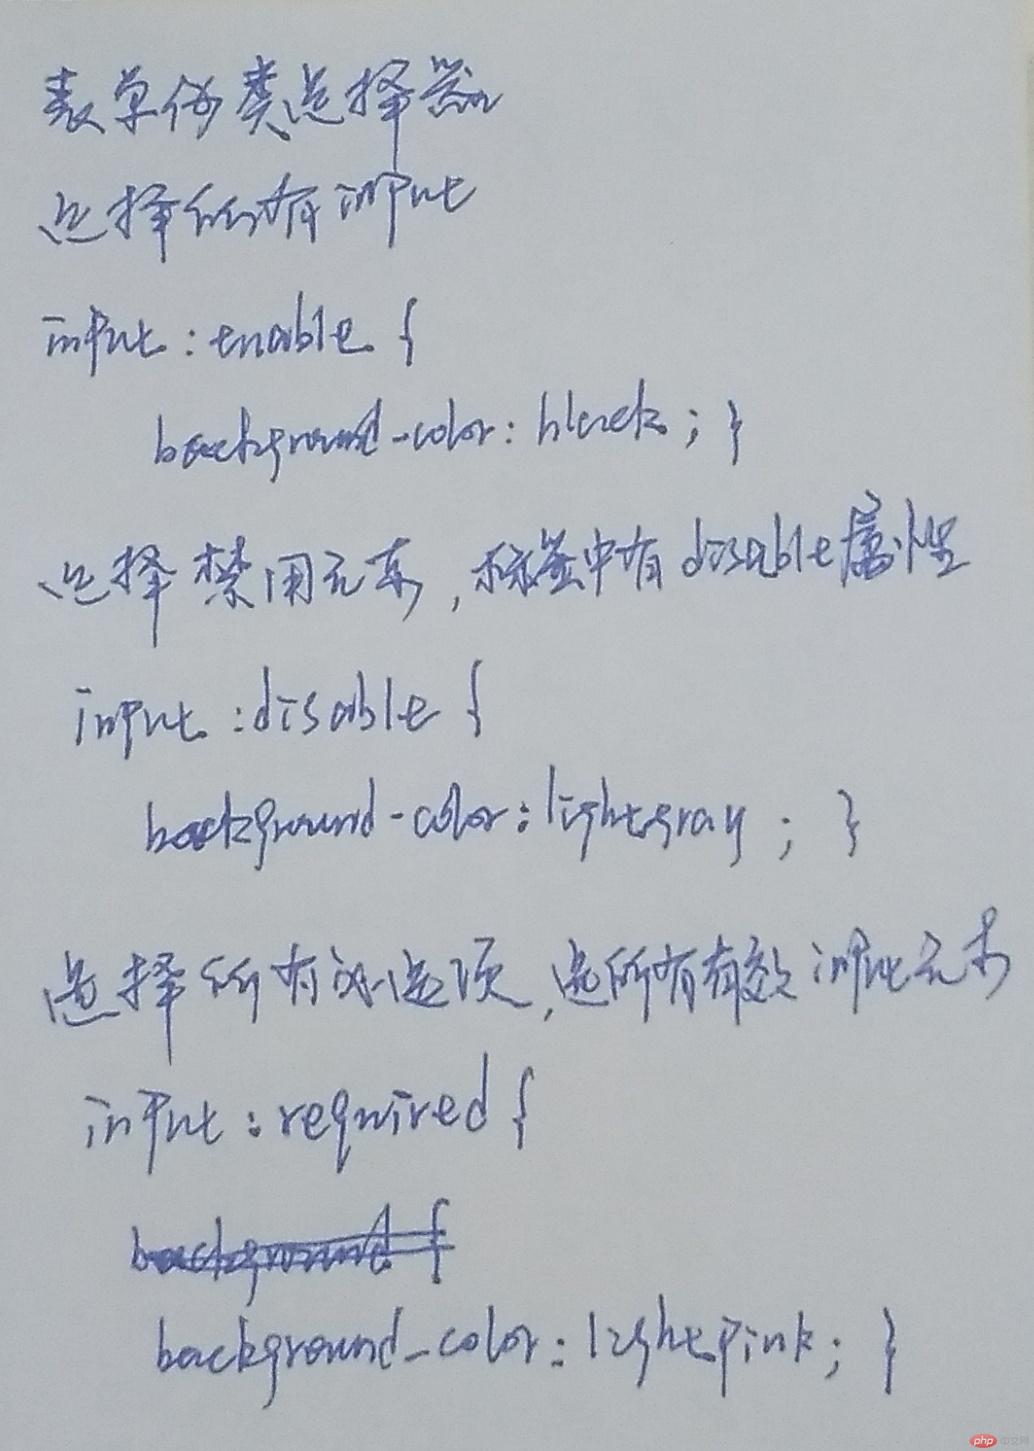 表单伪类选择器
选择所有input
input:enable {
background-color: black; }
选择禁用元素,标签中有disable属性
input:disable {
background-color:lightgray; }
选择所有必选项,选所有有效input元素
input:required {
background {
background-color:lightpink; }
php 中文网